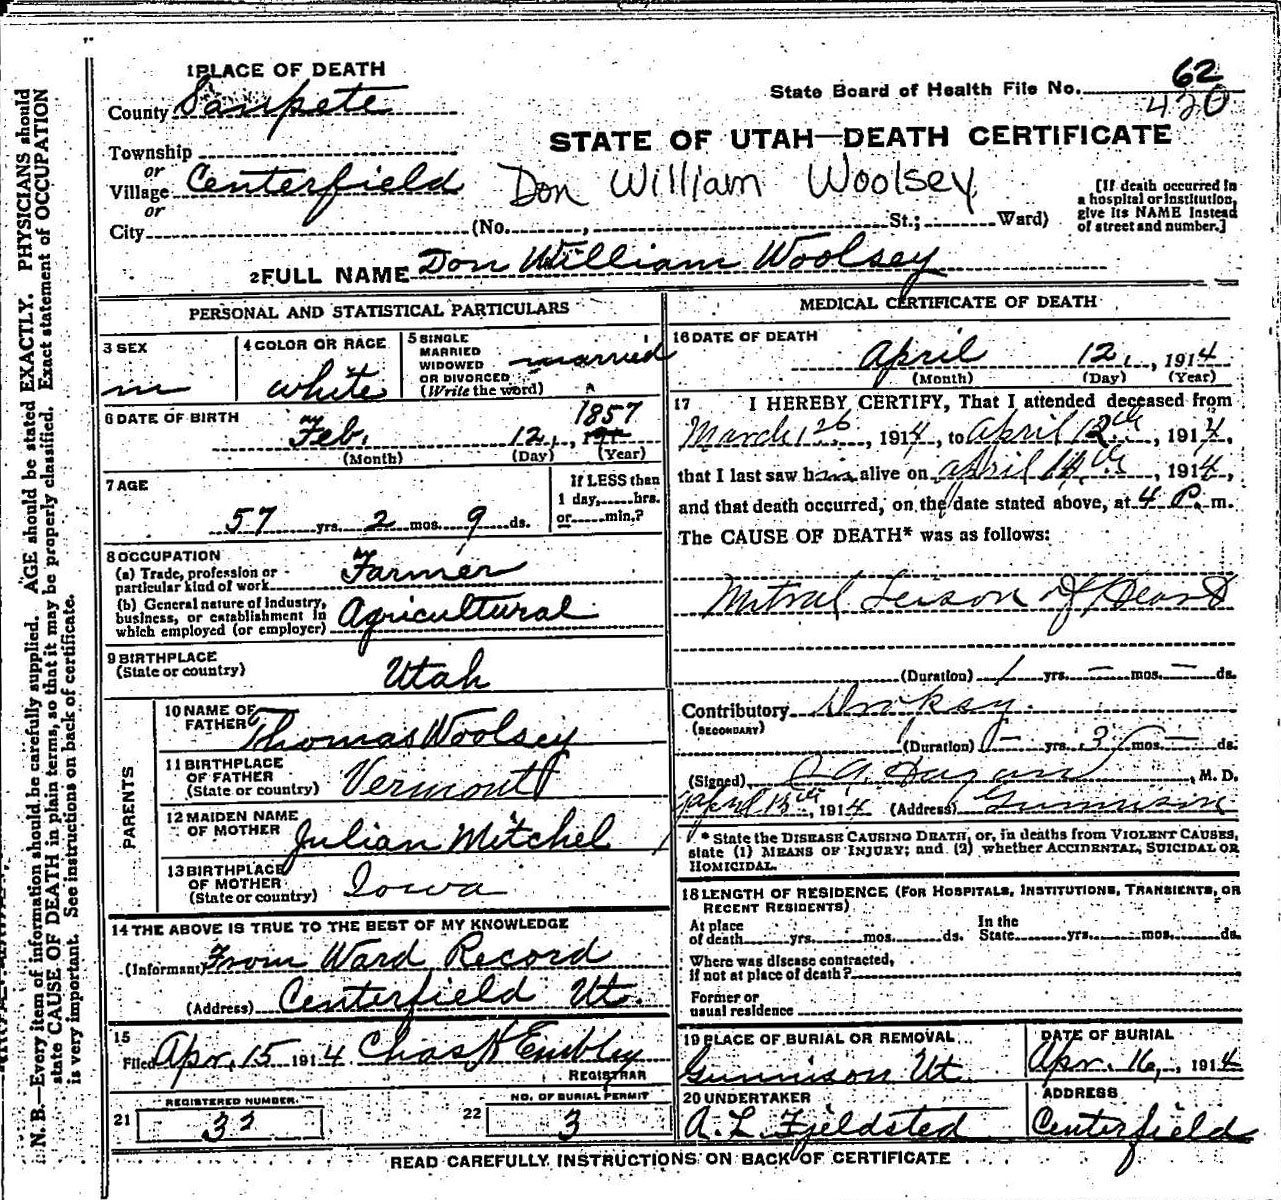 1 PLACE OF DEATH
County Sanpete
State Board of Health File No. 62
420
Township
or
Village Centerfield
or
City
STATE OF UTAH—DEATH CERTIFICATE
Don William Woolsey
(No. , St.; Ward)
[If death occurred in
a hospital or institution,
give its NAME instead
of street and number.]
2 FULL NAME Don William Woolsey
PERSONAL AND STATISTICAL PARTICULARS
3 SEX
m
4 COLOR OR RACE
white
5 SINGLE
MARRIED
WIDOWED
OR DIVORCED
(Write the word)
married
6 DATE OF BIRTH
Feb. 12, 1857
(Month) (Day) (Year)
7 AGE
57 yrs. 2 mos. 9 ds.
If LESS than
1 day, hrs.
or min.?
8 OCCUPATION
(a) Trade, profession or
particular kind of work Farmer
(b) General nature of industry,
business, or establishment in
which employed (or employer) Agricultural
9 BIRTHPLACE
(State or country) Utah
PARENTS
10 NAME OF
FATHER Thomas Woolsey
11 BIRTHPLACE
OF FATHER
(State or country) Vermont
12 MAIDEN NAME
OF MOTHER Julian Mitchel
13 BIRTHPLACE
OF MOTHER
(State or country) Iowa
14 THE ABOVE IS TRUE TO THE BEST OF MY KNOWLEDGE
(Informant) From Ward Record
(Address) Centerfield Ut.
15
Filed Apr. 15 1914 Chas H Embley
REGISTRAR
21 REGISTERED NUMBER
33
22 NO. OF BURIAL PERMIT
3
MEDICAL CERTIFICATE OF DEATH
16 DATE OF DEATH
April 12, 1914
(Month) (Day) (Year)
17 I HEREBY CERTIFY, That I attended deceased from
March , 1914, to April 12th, 1914,
that I last saw him alive on April , 1914,
and that death occurred, on the date stated above, at 4 P. m.
The CAUSE OF DEATH* was as follows:
Mitral Leison of Heart
(Duration) 1 yrs. — mos. — ds.
Contributory Dropsy.
(SECONDARY)
(Duration) — yrs. 3 mos. — ds.
(Signed) Hagan, M. D.
April , 1914 (Address) Gunnison
* State the DISEASE CAUSING DEATH, or, in deaths from VIOLENT CAUSES,
state (1) MEANS OF INJURY; and (2) whether ACCIDENTAL, SUICIDAL OR
HOMICIDAL.
18 LENGTH OF RESIDENCE (FOR HOSPITALS, INSTITUTIONS, TRANSIENTS, OR
RECENT RESIDENTS)
At place
of death yrs. mos. ds.
In the
State yrs. mos. ds.
Where was disease contracted,
if not at place of death?
Former or
usual residence
19 PLACE OF BURIAL OR REMOVAL
Gunnison Ut.
DATE OF BURIAL
Apr. 16, 1914
20 UNDERTAKER
A. L. Fjeldsted
ADDRESS
Centerfield
READ CAREFULLY INSTRUCTIONS ON BACK OF CERTIFICATE
N. B.—Every item of information should be carefully supplied. AGE should be stated EXACTLY. PHYSICIANS should
state CAUSE OF DEATH in plain terms, so that it may be properly classified. Exact statement of OCCUPATION
is very important. See instructions on back of certificate.